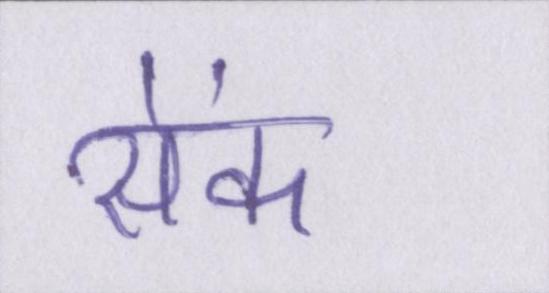 सेंक